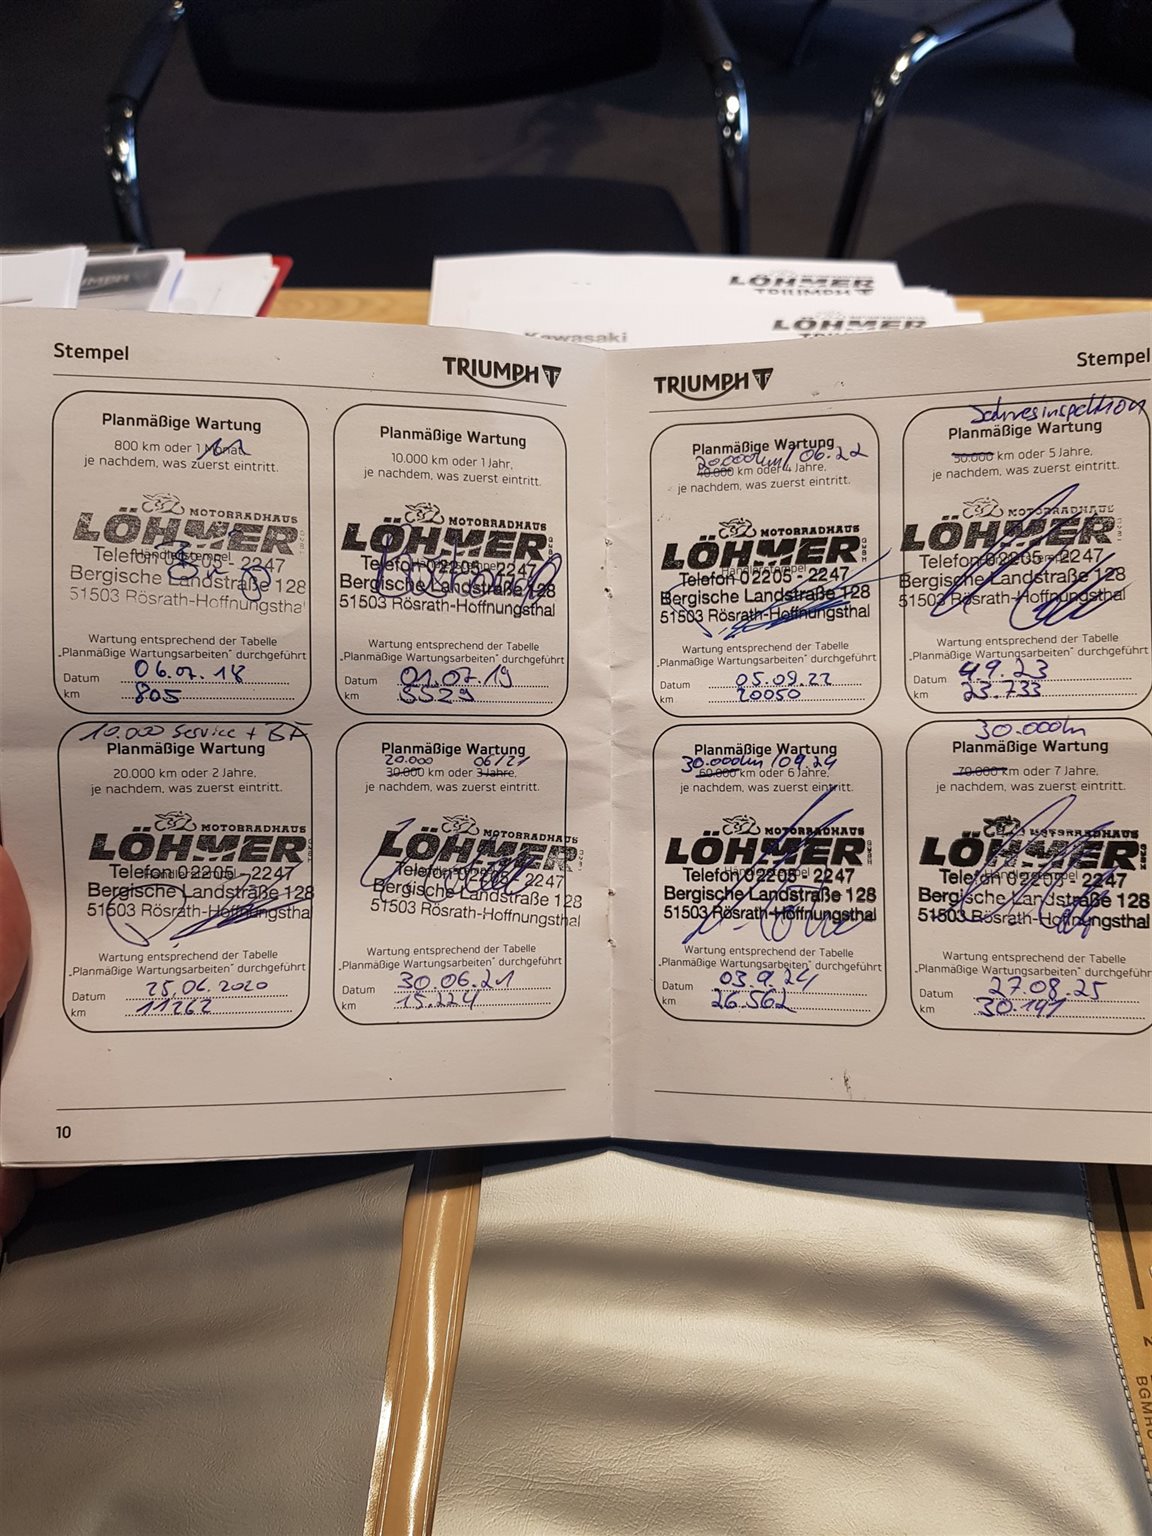 LÖHMER
TRIUMPH
LÖHMER
Kawasaki
Stempel
TRIUMPH
Planmäßige Wartung
800 km oder 1 Monat,
je nachdem, was zuerst eintritt.
MOTORRADHAUS
LÖHMER
Händlerstempel
Telefon 02205 - 2247
Bergische Landstraße 128
51503 Rösrath-Hoffnungsthal
Wartung entsprechend der Tabelle
„Planmäßige Wartungsarbeiten" durchgeführt
Datum 06.07.18
km 805
Planmäßige Wartung
10.000 km oder 1 Jahr,
je nachdem, was zuerst eintritt.
MOTORRADHAUS
LÖHMER GMBH
Händlerstempel
Telefon 02205 - 2247
Bergische Landstraße 128
51503 Rösrath-Hoffnungsthal
Wartung entsprechend der Tabelle
„Planmäßige Wartungsarbeiten" durchgeführt
Datum 01.07.19
km 5529
10.000 Service + BF
Planmäßige Wartung
20.000 km oder 2 Jahre,
je nachdem, was zuerst eintritt.
MOTORRADHAUS
LÖHMER
Händlerstempel
Telefon 02205 - 2247
Bergische Landstraße 128
51503 Rösrath-Hoffnungsthal
Wartung entsprechend der Tabelle
„Planmäßige Wartungsarbeiten" durchgeführt
Datum 25.06.2020
km 11262
Planmäßige Wartung
20.000 06/21
30.000 km oder 3 Jahre,
je nachdem, was zuerst eintritt.
MOTORRADHAUS
LÖHMER GMBH
Telefon 02205 - 2247
Bergische Landstraße 128
51503 Rösrath-Hoffnungsthal
Wartung entsprechend der Tabelle
„Planmäßige Wartungsarbeiten" durchgeführt
Datum 30.06.21
km 15.224
10
TRIUMPH
Stempel
Planmäßige Wartung
20.000km/06.22
40.000 km oder 4 Jahre,
je nachdem, was zuerst eintritt.
MOTORRADHAUS
LÖHMER GMBH
Händlerstempel
Telefon 02205 - 2247
Bergische Landstraße 128
51503 Rösrath-Hoffnungsthal
Wartung entsprechend der Tabelle
„Planmäßige Wartungsarbeiten" durchgeführt
Datum 05.09.22
km 20050
Jahresinspektion
Planmäßige Wartung
50.000 km oder 5 Jahre,
je nachdem, was zuerst eintritt.
MOTORRADHAUS
LÖHMER GMBH
Telefon 02205 - 2247
Bergische Landstraße 128
51503 Rösrath-Hoffnungsthal
Wartung entsprechend der Tabelle
„Planmäßige Wartungsarbeiten" durchgeführt
Datum 4.9.23
km 23.733
Planmäßige Wartung
30.000km/09.24
60.000 km oder 6 Jahre,
je nachdem, was zuerst eintritt.
MOTORRADHAUS
LÖHMER GMBH
Händlerstempel
Telefon 02205 - 2247
Bergische Landstraße 128
51503 Rösrath-Hoffnungsthal
Wartung entsprechend der Tabelle
„Planmäßige Wartungsarbeiten" durchgeführt
Datum 03.9.24
km 26.562
30.000km
Planmäßige Wartung
70.000 km oder 7 Jahre,
je nachdem, was zuerst eintritt.
MOTORRADHAUS
LÖHMER
Händlerstempel
Telefon 02205 - 2247
Bergische Landstraße 128
51503 Rösrath-Hoffnungsthal
Wartung entsprechend der Tabelle
„Planmäßige Wartungsarbeiten" durchgeführt
Datum 27.08.25
km 30.141